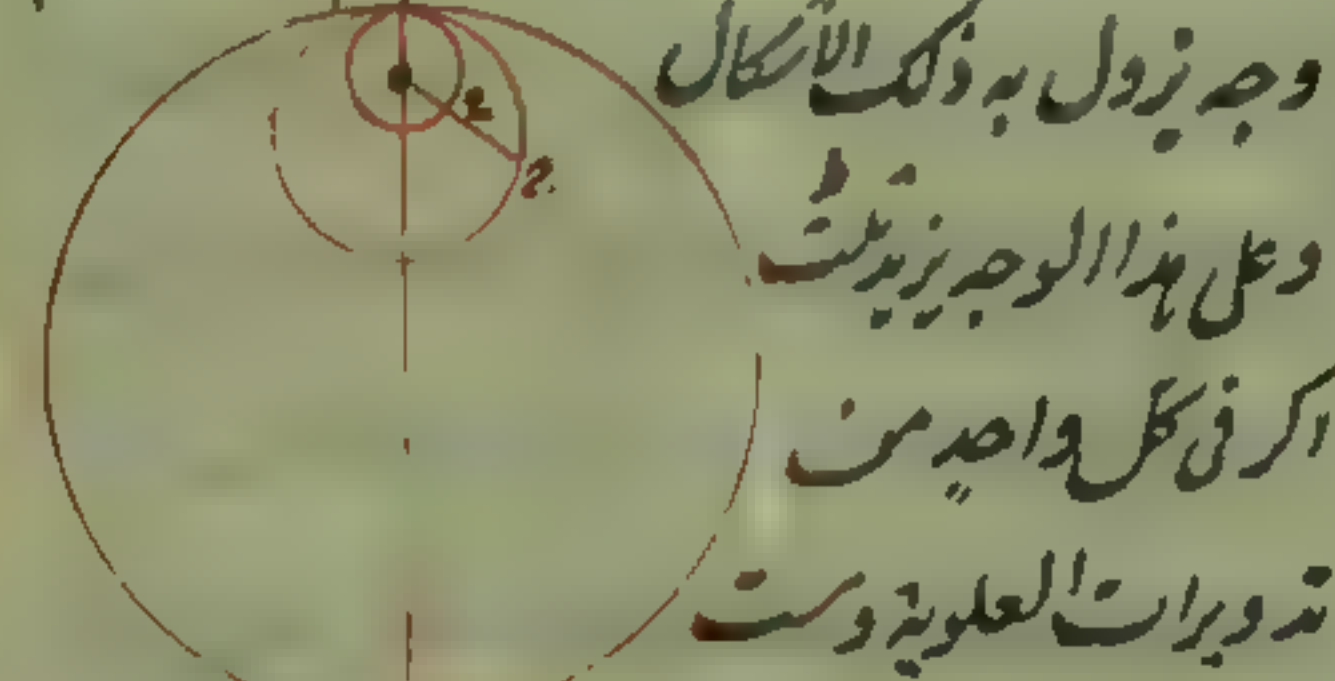 وجه يزول به ذلك الأشكال
وعلى هذا الوجه يزيد ثلث
اكر فى كل واحد من
تدويرات العلوية وست